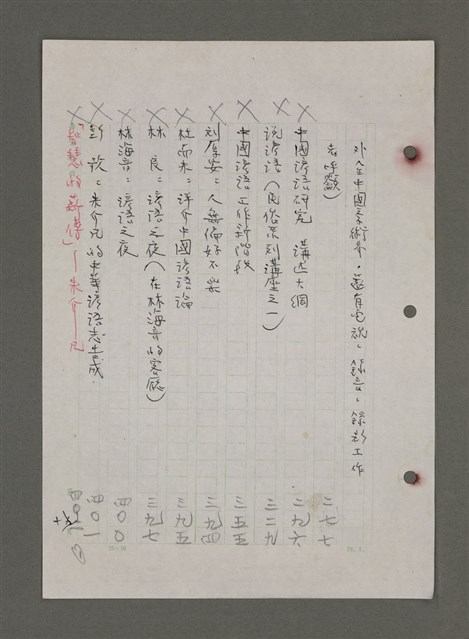 外全中國學術界,並有電視、錄音、錄影工作
者呼籲)
二七七
中國諺語研究 講述大綱
二九六
說諺語(民俗系列講座之一)
三二九
中國諺語工作新階段
三五五
劉厚安:人無偏好不
三九四
杜而未:評介中國諺語論
三九五
林良:諺語之夜(在林海音的客廳)
三九七
林海音:諺語之夜
四〇〇
彭歌:朱介凡的中華諺語志告成.
四〇一
「智慧的薪傳」—朱介凡